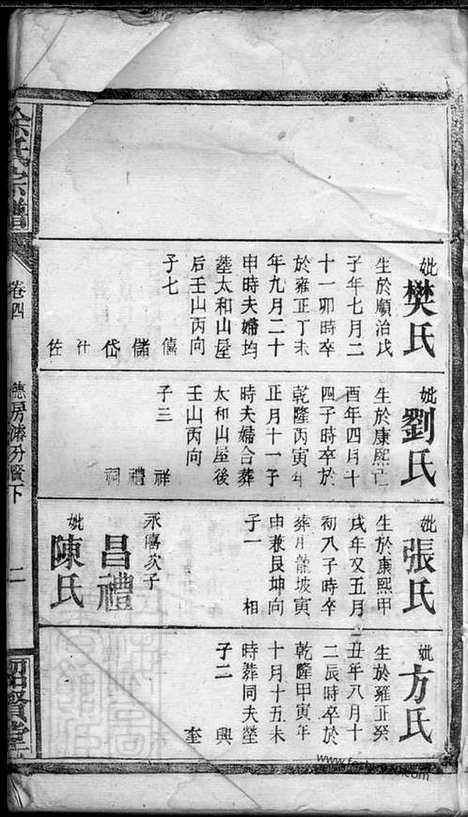 妣樊氏
生於順治戊
子年七月二
十一卯時卒
於雍正丁未
年九月二十
申時夫婦均
塟太和山屋
后壬山丙向
子七
僖
儲
岱
什
佐
妣劉氏
生於康熙
酉年四月十
四子時卒於
乾隆丙寅年
正月十一子
時夫婦合葬
太和山屋後
壬山丙向
子三
祥
禮
祠
妣張氏
生於康熙甲
戌年又五月
初八子時卒
葬龍坡寅
申兼艮坤向
子一
相
永僖次子
昌禮
妣陳氏
妣方氏
生於雍正癸
丑年八月十
二辰時卒於
乾隆甲寅年
十月十五未
時葬同夫塋
子二
興
奎
余氏宗譜
卷四
德房濬分賢下
二
昭賢堂